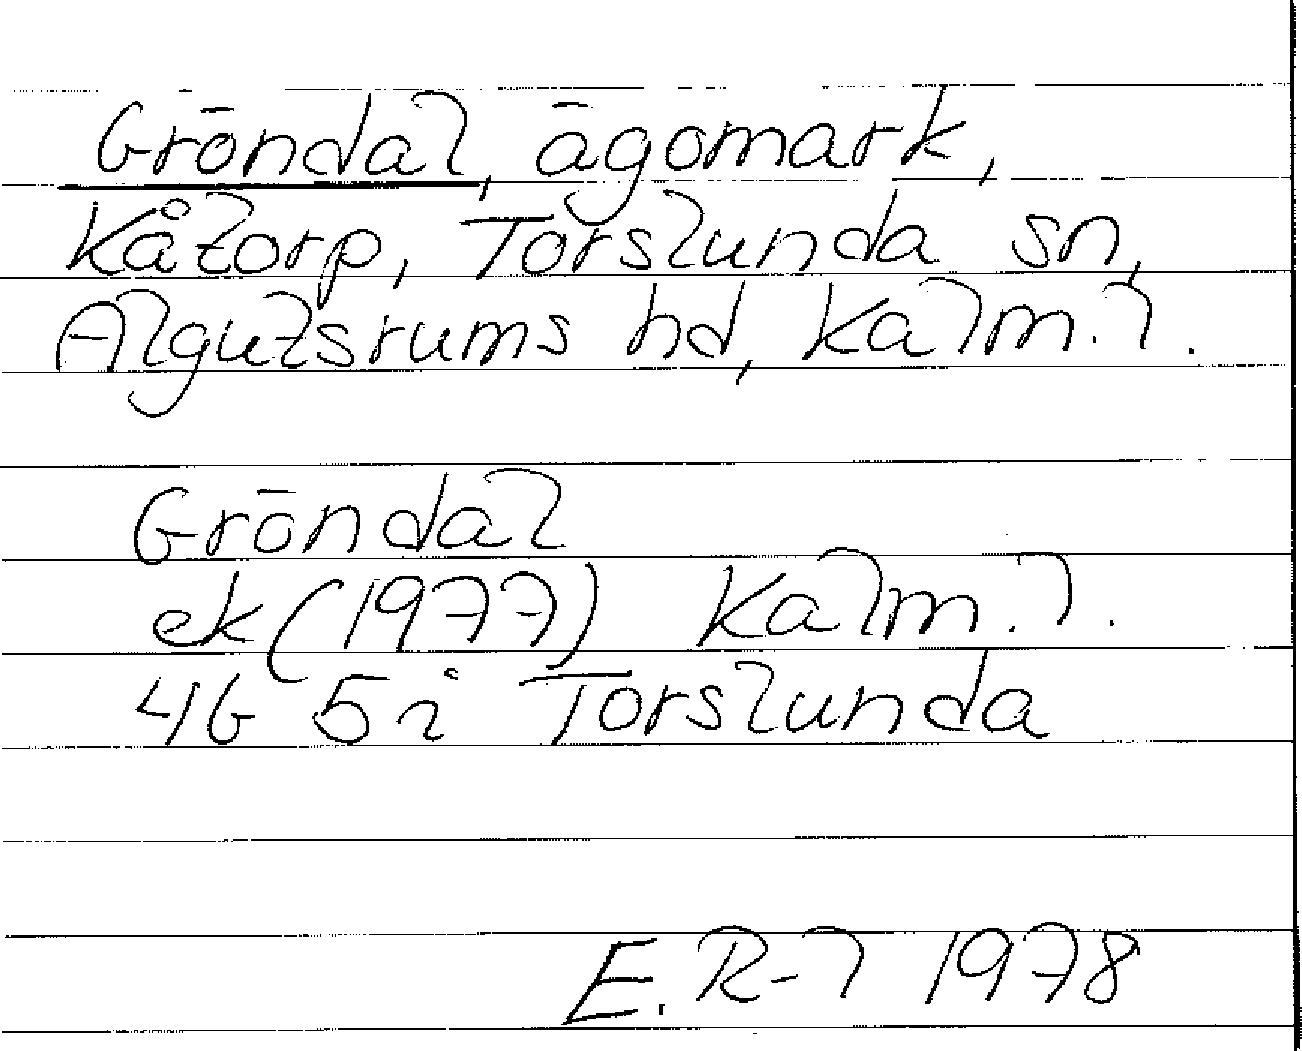 Gröndal, ägomark,
Kåtorp, Torslunda sn,
Algutsrums hd, Kalm. l.
Gröndal
ek (1977) Kalm. l.
4G 5i Torslunda
E. R-l 1978